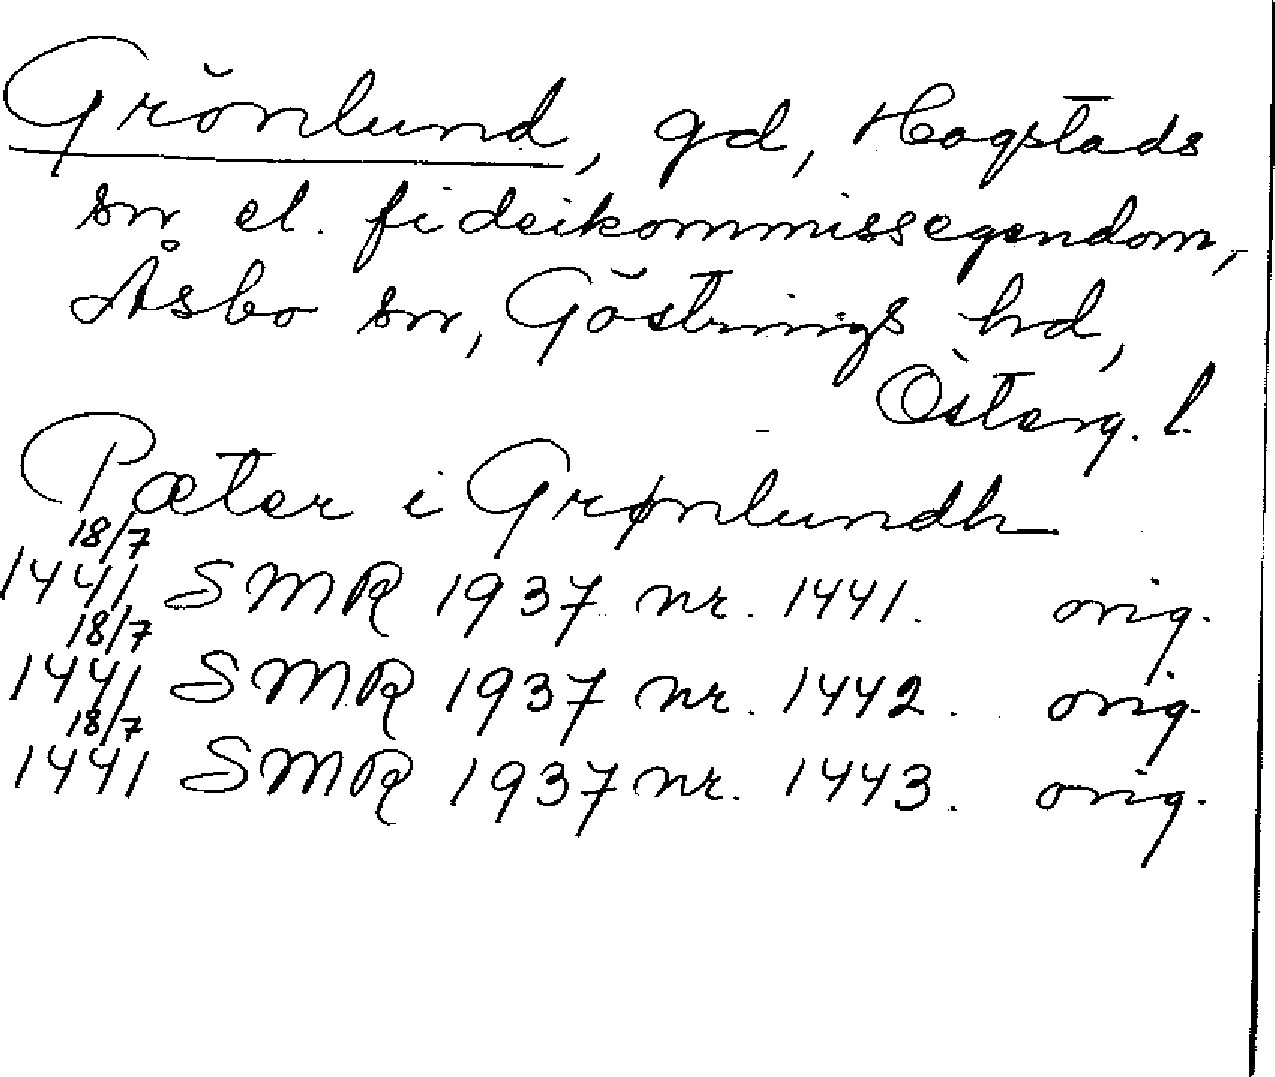 Grönlund, gd, Hogstads
sn el. fideikommissegendom,
Åsbo sn, Göstrings hd,
Österg. l.
Pæter i Grønlundh
18/7
1441 SMR 1937 nr. 1441. orig.
18/7
1441 SMR 1937 nr. 1442. orig.
18/7
1441 SMR 1937 nr. 1443. orig.